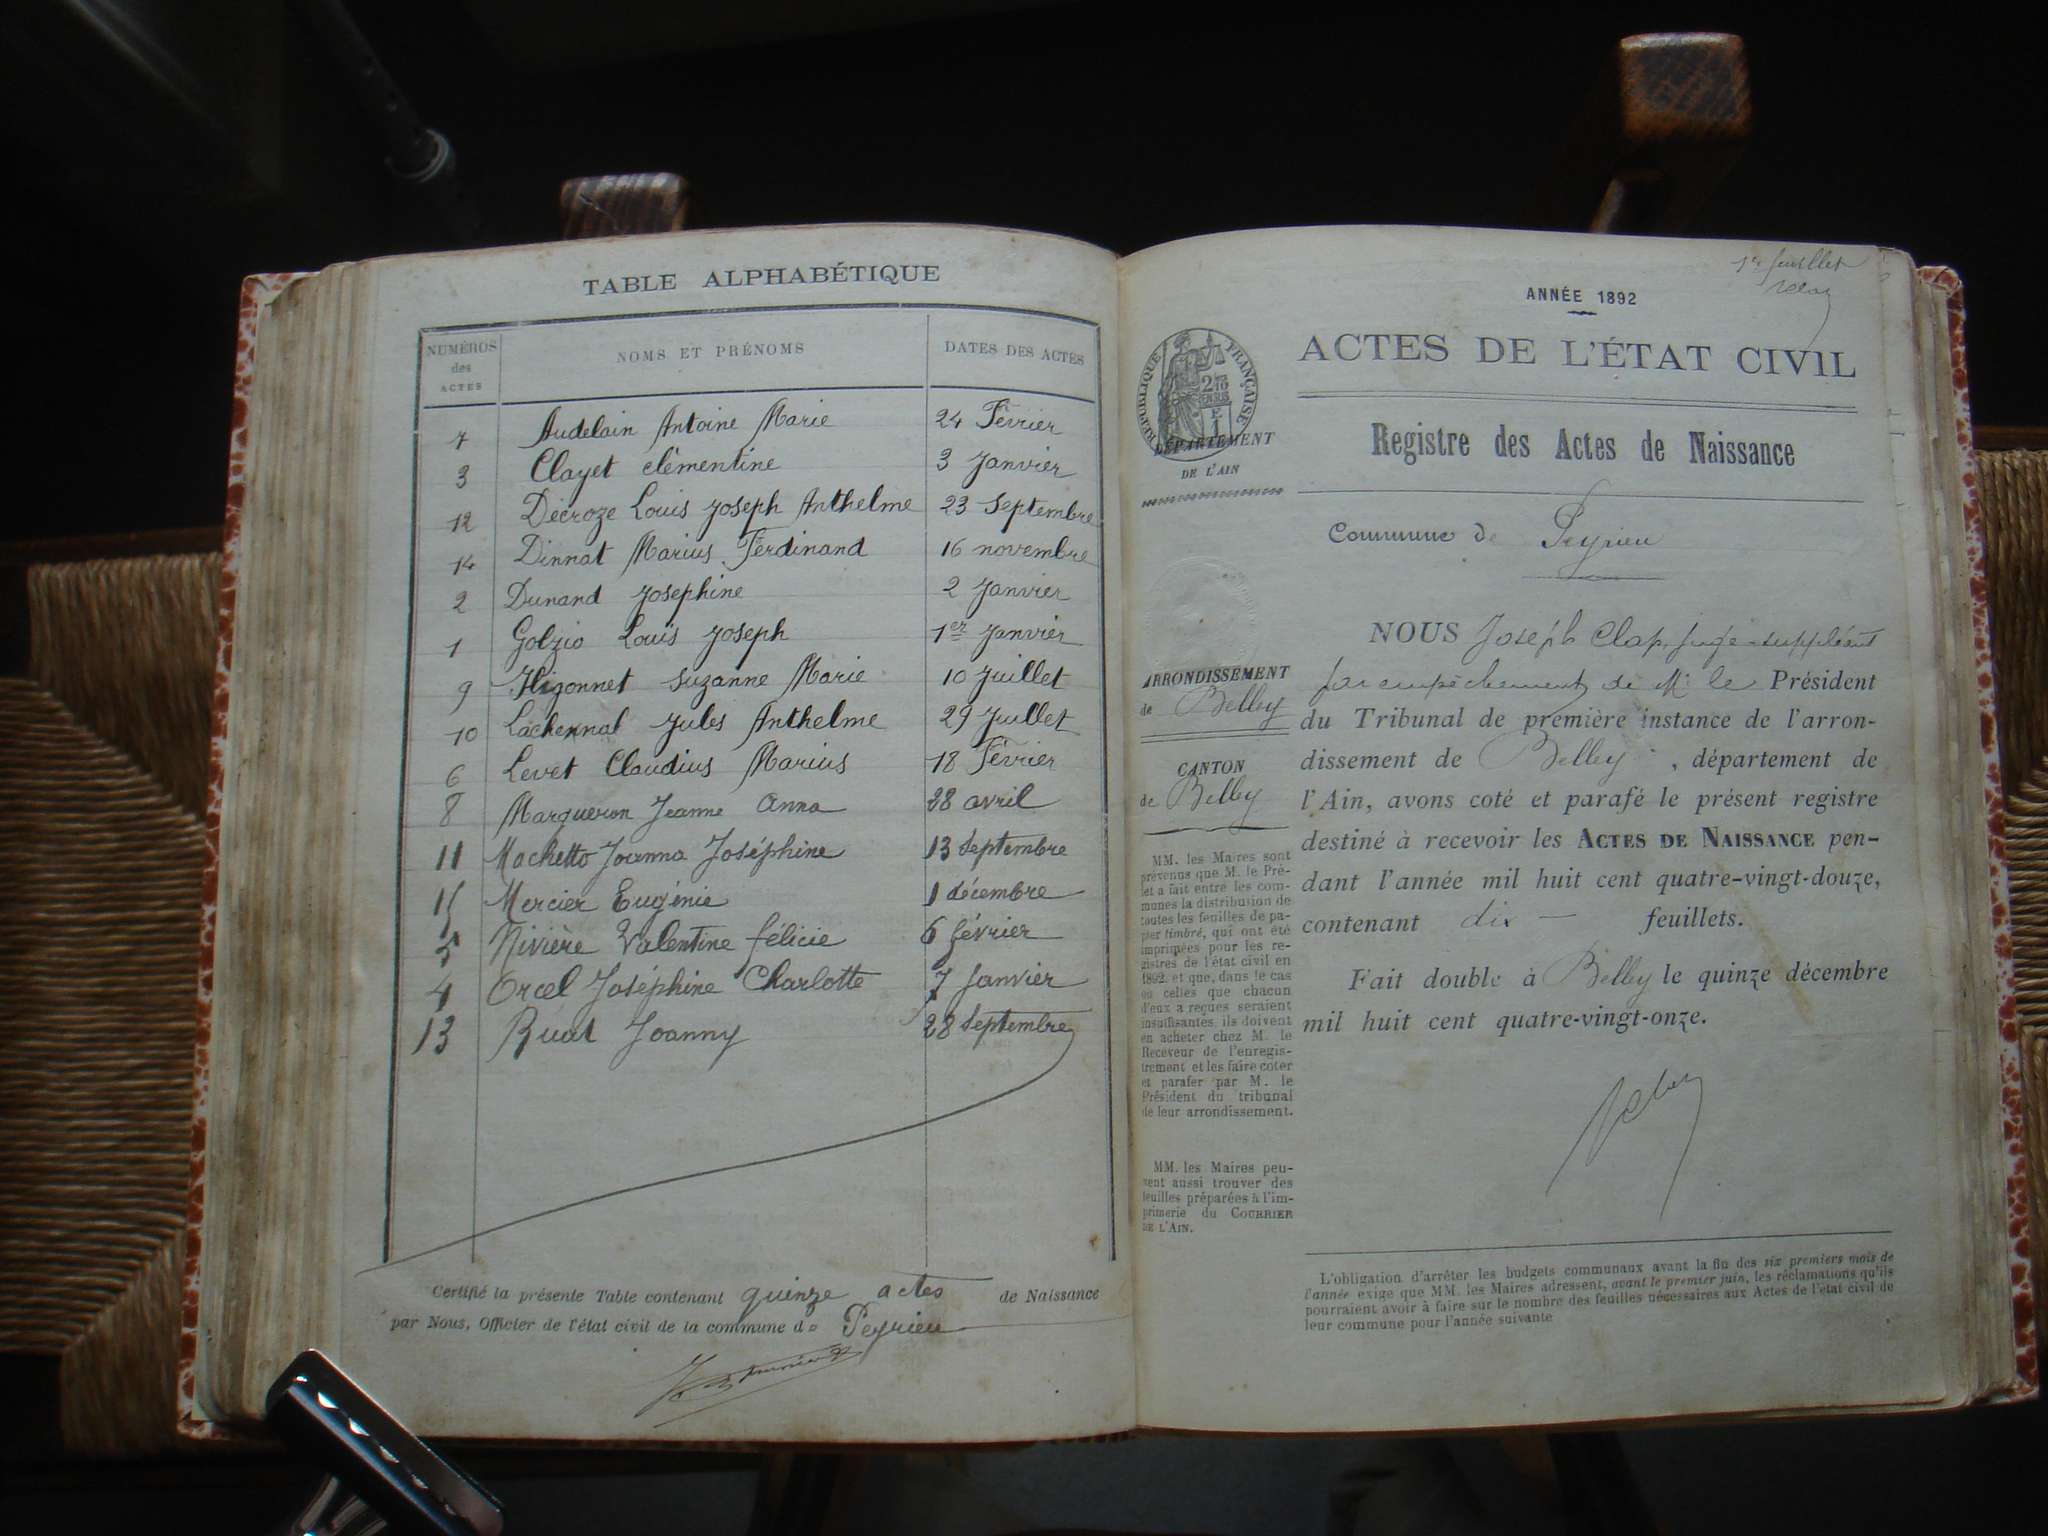 TABLE ALPHABÉTIQUE
NUMÉROS des ACTES NOMS ET PRÉNOMS DATES DES ACTES
7 Audelain Antoine Marie 24 Février
3 Clayet clémentine 3 Janvier
12 Décroze Louis Joseph Anthelme 23 Septembre
14 Dinnat Marius Ferdinand 16 novembre
2 Dunand Josephine 2 Janvier
1 Golzio Louis Joseph 1er Janvier
9 Higonnet Suzanne Marie 10 Juillet
10 Lachennal Jules Anthelme 29 Juillet
6 Levet Claudius Marius 18 Février
8 Marqueron Jeanne Anna 28 avril
11 Machetto Joanna Joséphine 13 Septembre
15 Mercier Eugénie 1 décembre
5 Nivière Valentine félicie 6 février
4 Orcel Joséphine Charlotte 7 Janvier
13 Ruat Joanny 28 Septembre
Certifié la présente Table contenant quinze actes de Naissance
par Nous, Officier de l'état civil de la commune de Peyrieu
1er feuillet
ANNÉE 1892
ACTES DE L'ÉTAT CIVIL
Registre des Actes de Naissance
Commune de Peyrieu
RÉPUBLIQUE FRANÇAISE
DÉPARTEMENT
DE L'AIN
ARRONDISSEMENT
de Belley
CANTON
de Belley
MM. les Maires sont
prévenus que M. le Pré-
fet a fait entre les com-
munes la distribution de
toutes les feuilles de pa-
pier timbré, qui ont été
imprimées pour les re-
gistres de l'état civil en
1892, et que, dans le cas
où celles que chacun
d'eux a reçues seraient
insuffisantes, ils doivent
en acheter chez M. le
Receveur de l'enregis-
trement et les faire coter
et parafer par M. le
Président du tribunal
de leur arrondissement.
MM. les Maires peu-
vent aussi trouver des
feuilles préparées à l'im-
primerie du COURRIER
DE L'AIN.
NOUS Joseph Clap, juge-suppléant
par empêchement de M. le Président
du Tribunal de première instance de l'arron-
dissement de Belley, département de
l'Ain, avons coté et parafé le présent registre
destiné à recevoir les ACTES DE NAISSANCE pen-
dant l'année mil huit cent quatre-vingt-douze,
contenant dix — feuillets.
Fait double à Belley le quinze décembre
mil huit cent quatre-vingt-onze.
L'obligation d'arrêter les budgets communaux avant la fin des six premiers mois de
l'année exige que MM. les Maires adressent, avant le premier juin, les réclamations qu'ils
pourraient avoir à faire sur le nombre des feuilles nécessaires aux Actes de l'état civil de
leur commune pour l'année suivante